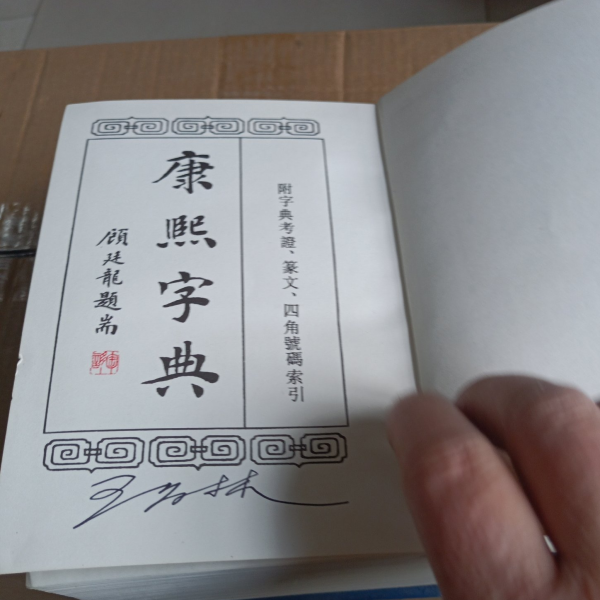 附字典考證、篆文、四角號碼索引
康熙字典
顧廷龍題耑